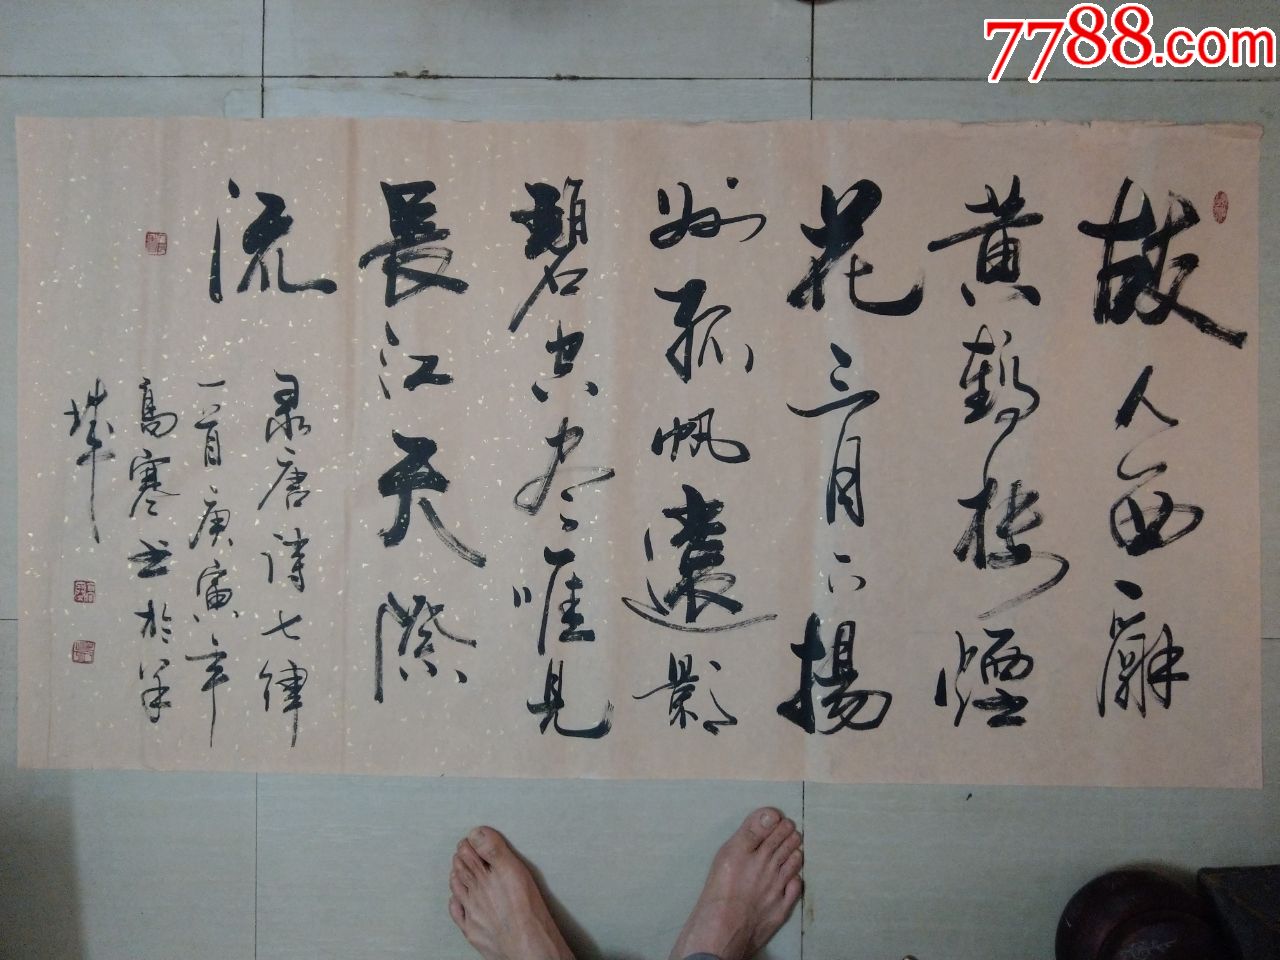 7788.com
故人西辭
黄鶴楼煙
花三月下揚
州孤帆遠影
碧空尽唯見
長江天際
流
录唐詩七律
一首庚寅年
高寒书於羊
城